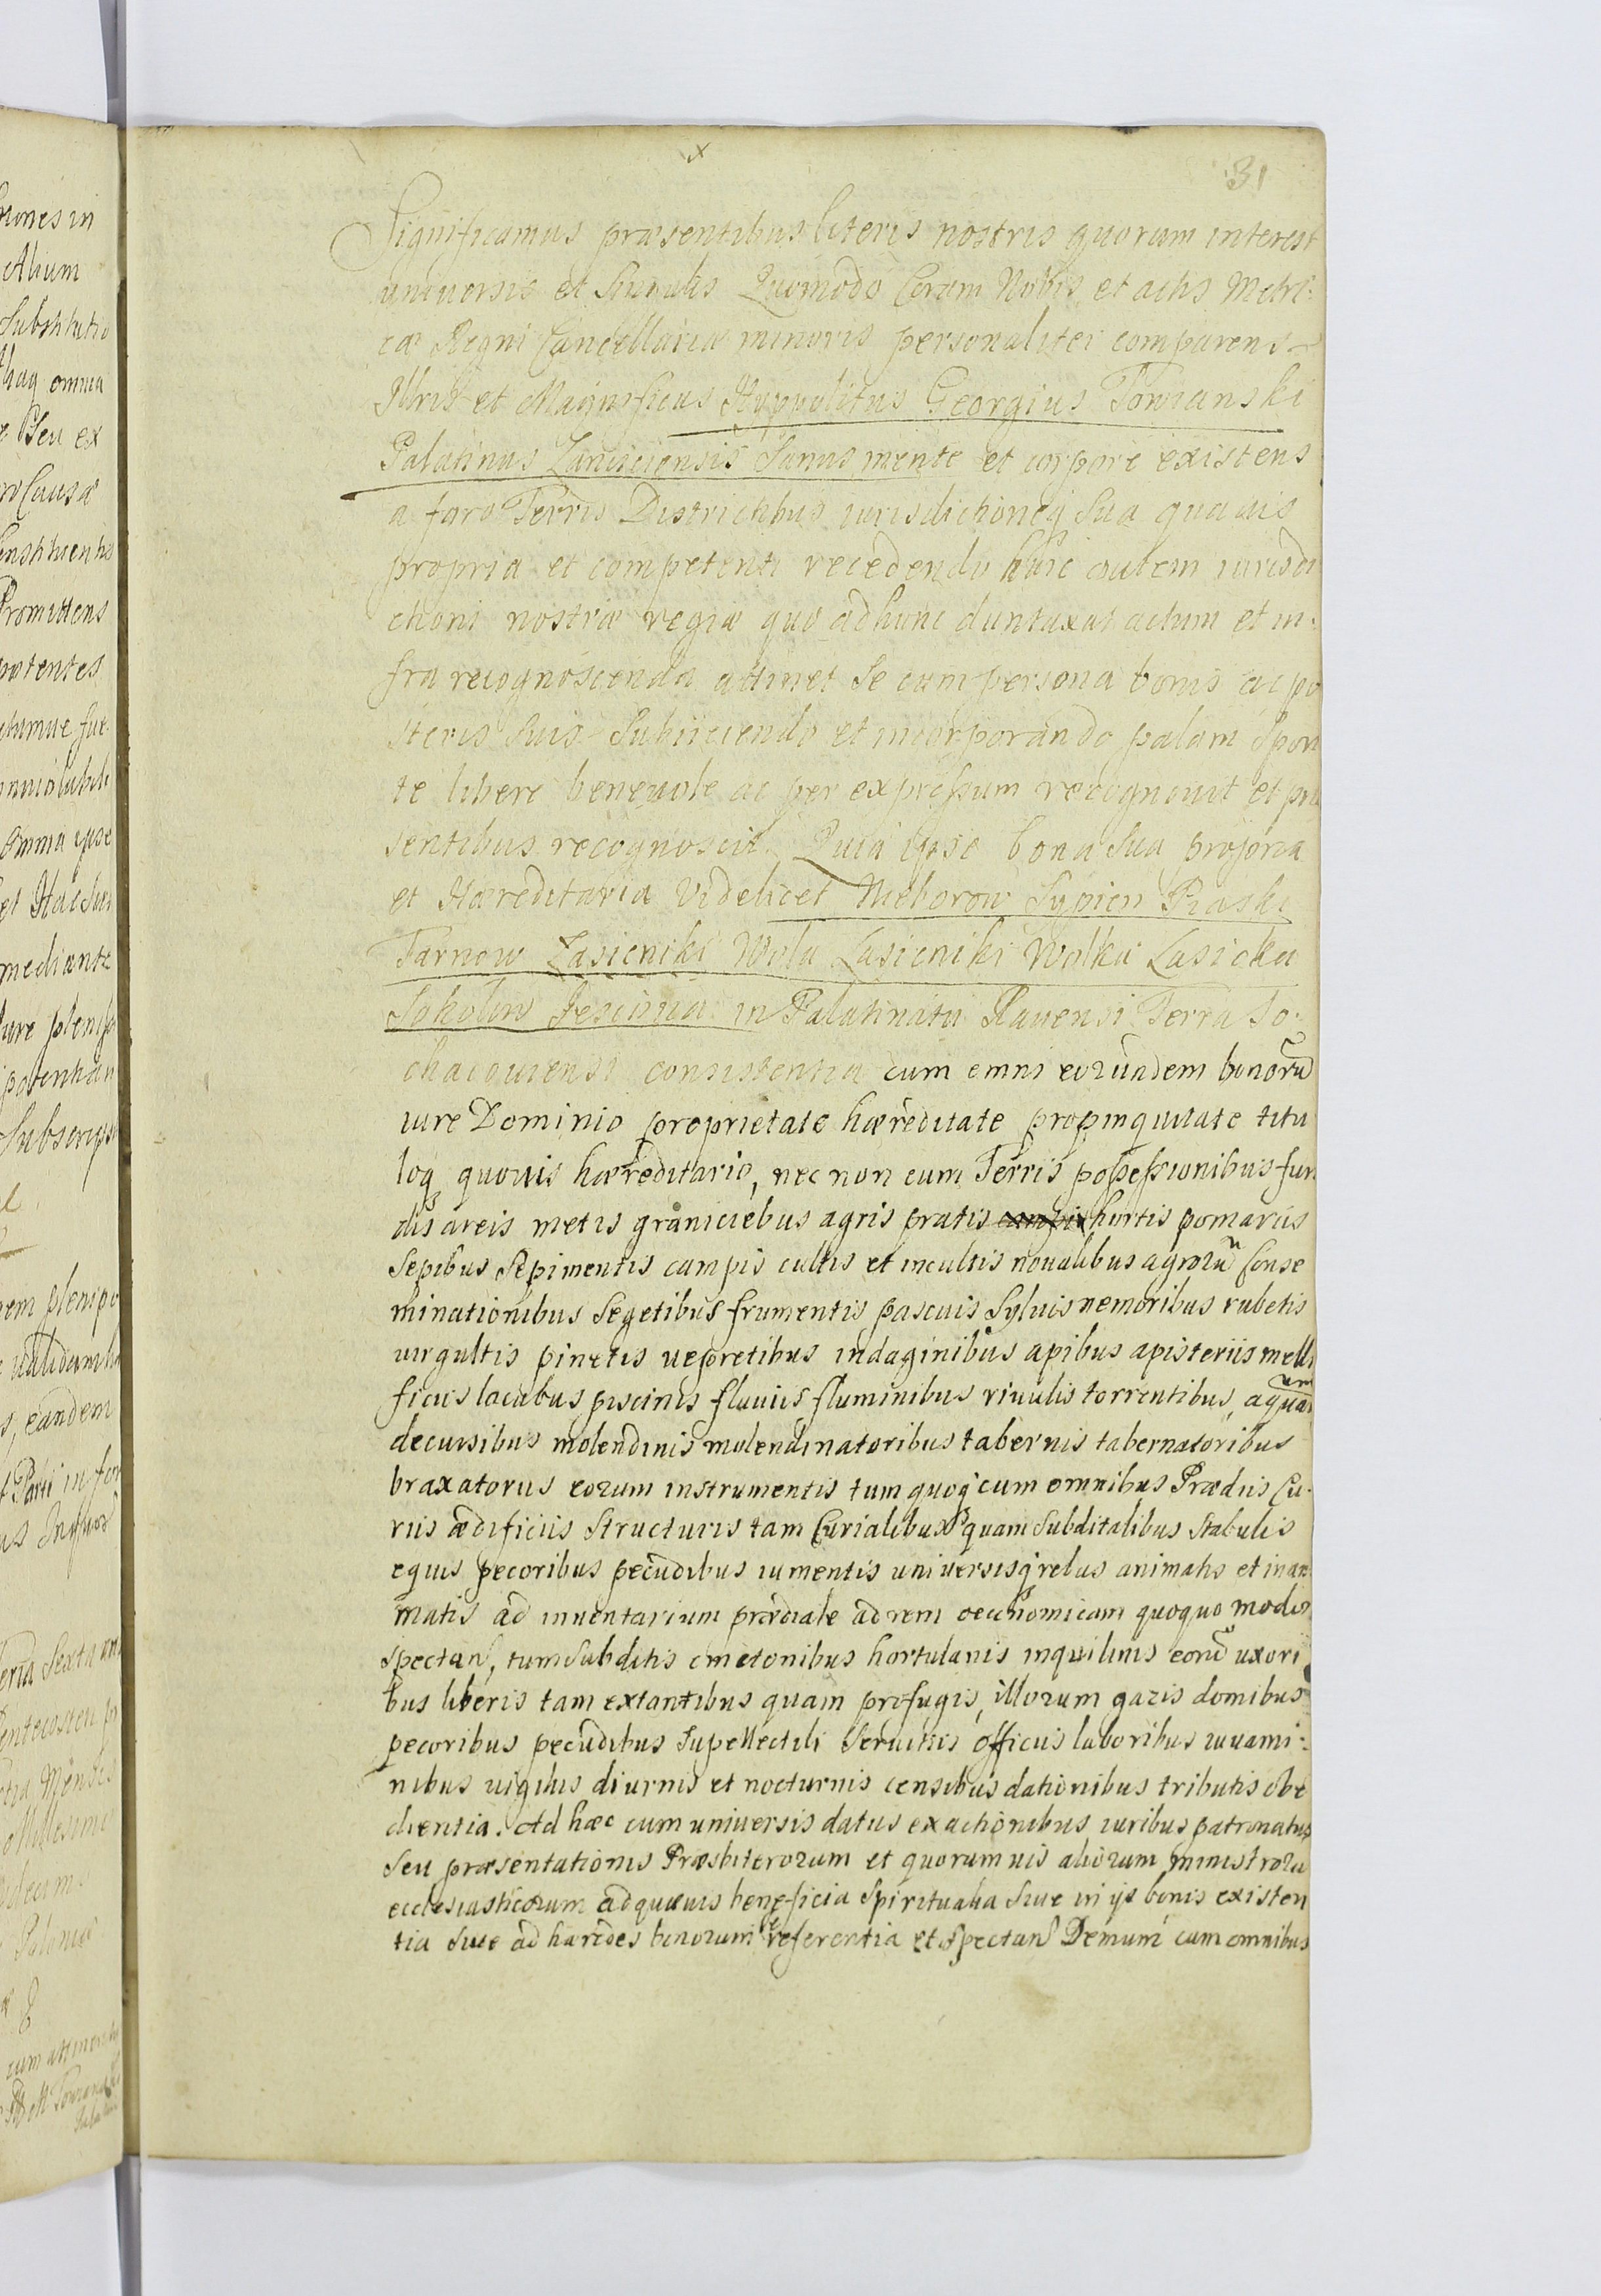 x
31
Significamus præsentibus literis nostris quorum interest
uniuersis et Singulis Quomodo Coram Nobis et actis Metri-
cæ Regni Cancellariæ minoris personaliter comparens
Illris et Magnificus Hyppolitus Georgius Towianski
Palatinus Lanciciensis Sanus mente et corpore existens
a foro Terris Districtibus iurisdictioneq Sua quauis
propria et competenti recedendo huic autem iurisdi
ctioni nostræ regiæ quo ad hunc duntaxat actum et in-
fra recognoscenda attinet Se cum persona bonis ac po
steris Suis Subiiciendo et incorporando palam Spon
te libere beneuole ac per expressum recognouit et præ
sentibus recognoscit Quia ipse bona Sua propria
et Hæreditaria Videlicet Nieborow Sypien Piaski
Tarnow Lasieniki Wola Lasieniki Wolka Lasicka
Sokolow in Palatinatu Rauensi Terra So-
chacouiensi consistentia cum omni eorundem bonorũ
iure Dominio proprietate hæreditate propinquitate titu
loq quouis hæreditario, nec non cum Terris possessionibus fun
dis areis metis graniciebus agris pratis hortis pomariis
Sepibus Sepimentis campis cultis et incultis noualibus agrorũ Conse
minationibus Segetibus frumentis pascuis Syluis nemoribus rubetis
uirgultis pinetis uepretibus indaginibus apibus apisteriis melli
ficiis lacubus piscinis fluuiis fluminibus riuulis torrentibus, aquarum
decursibus molendinis molendinatoribus tabernis tabernatoribus
braxatoriis eorum instrumentis tum quoq cum omnibus Prædiis Cu-
riis ædificiis Structuris tam Curialibus quam Subditalibus Stabulis
equis pecoribus pecudibus iumentis uniuersisq rebus animatis et inani
matis ad inuentarium prædiale ad rem oeconomicam quoquo modo
spectan, tum Subditis cmetonibus hortulanis inquilinis eorũ uxori
bus liberis tam extantibus quam profugis, illorum gazis domibus
pecoribus pecudibus Supellectili Seruitiis officiis laboribus iuuami-
nibus uigiliis diurnis et nocturnis censibus dationibus tributis obe
dientia. Ad hæc cum uniuersis datiis exactionibus iuribus patronatus
Seu præsentationis Præsbiterorum et quorumuis aliorum ministrorũ
ecclesiasticorum ad quæuis beneficia Spiritualia Siue in ijs bonis existen
tia Siue ad hæredes bonorum referentia et Spectan Demum cum omnibus